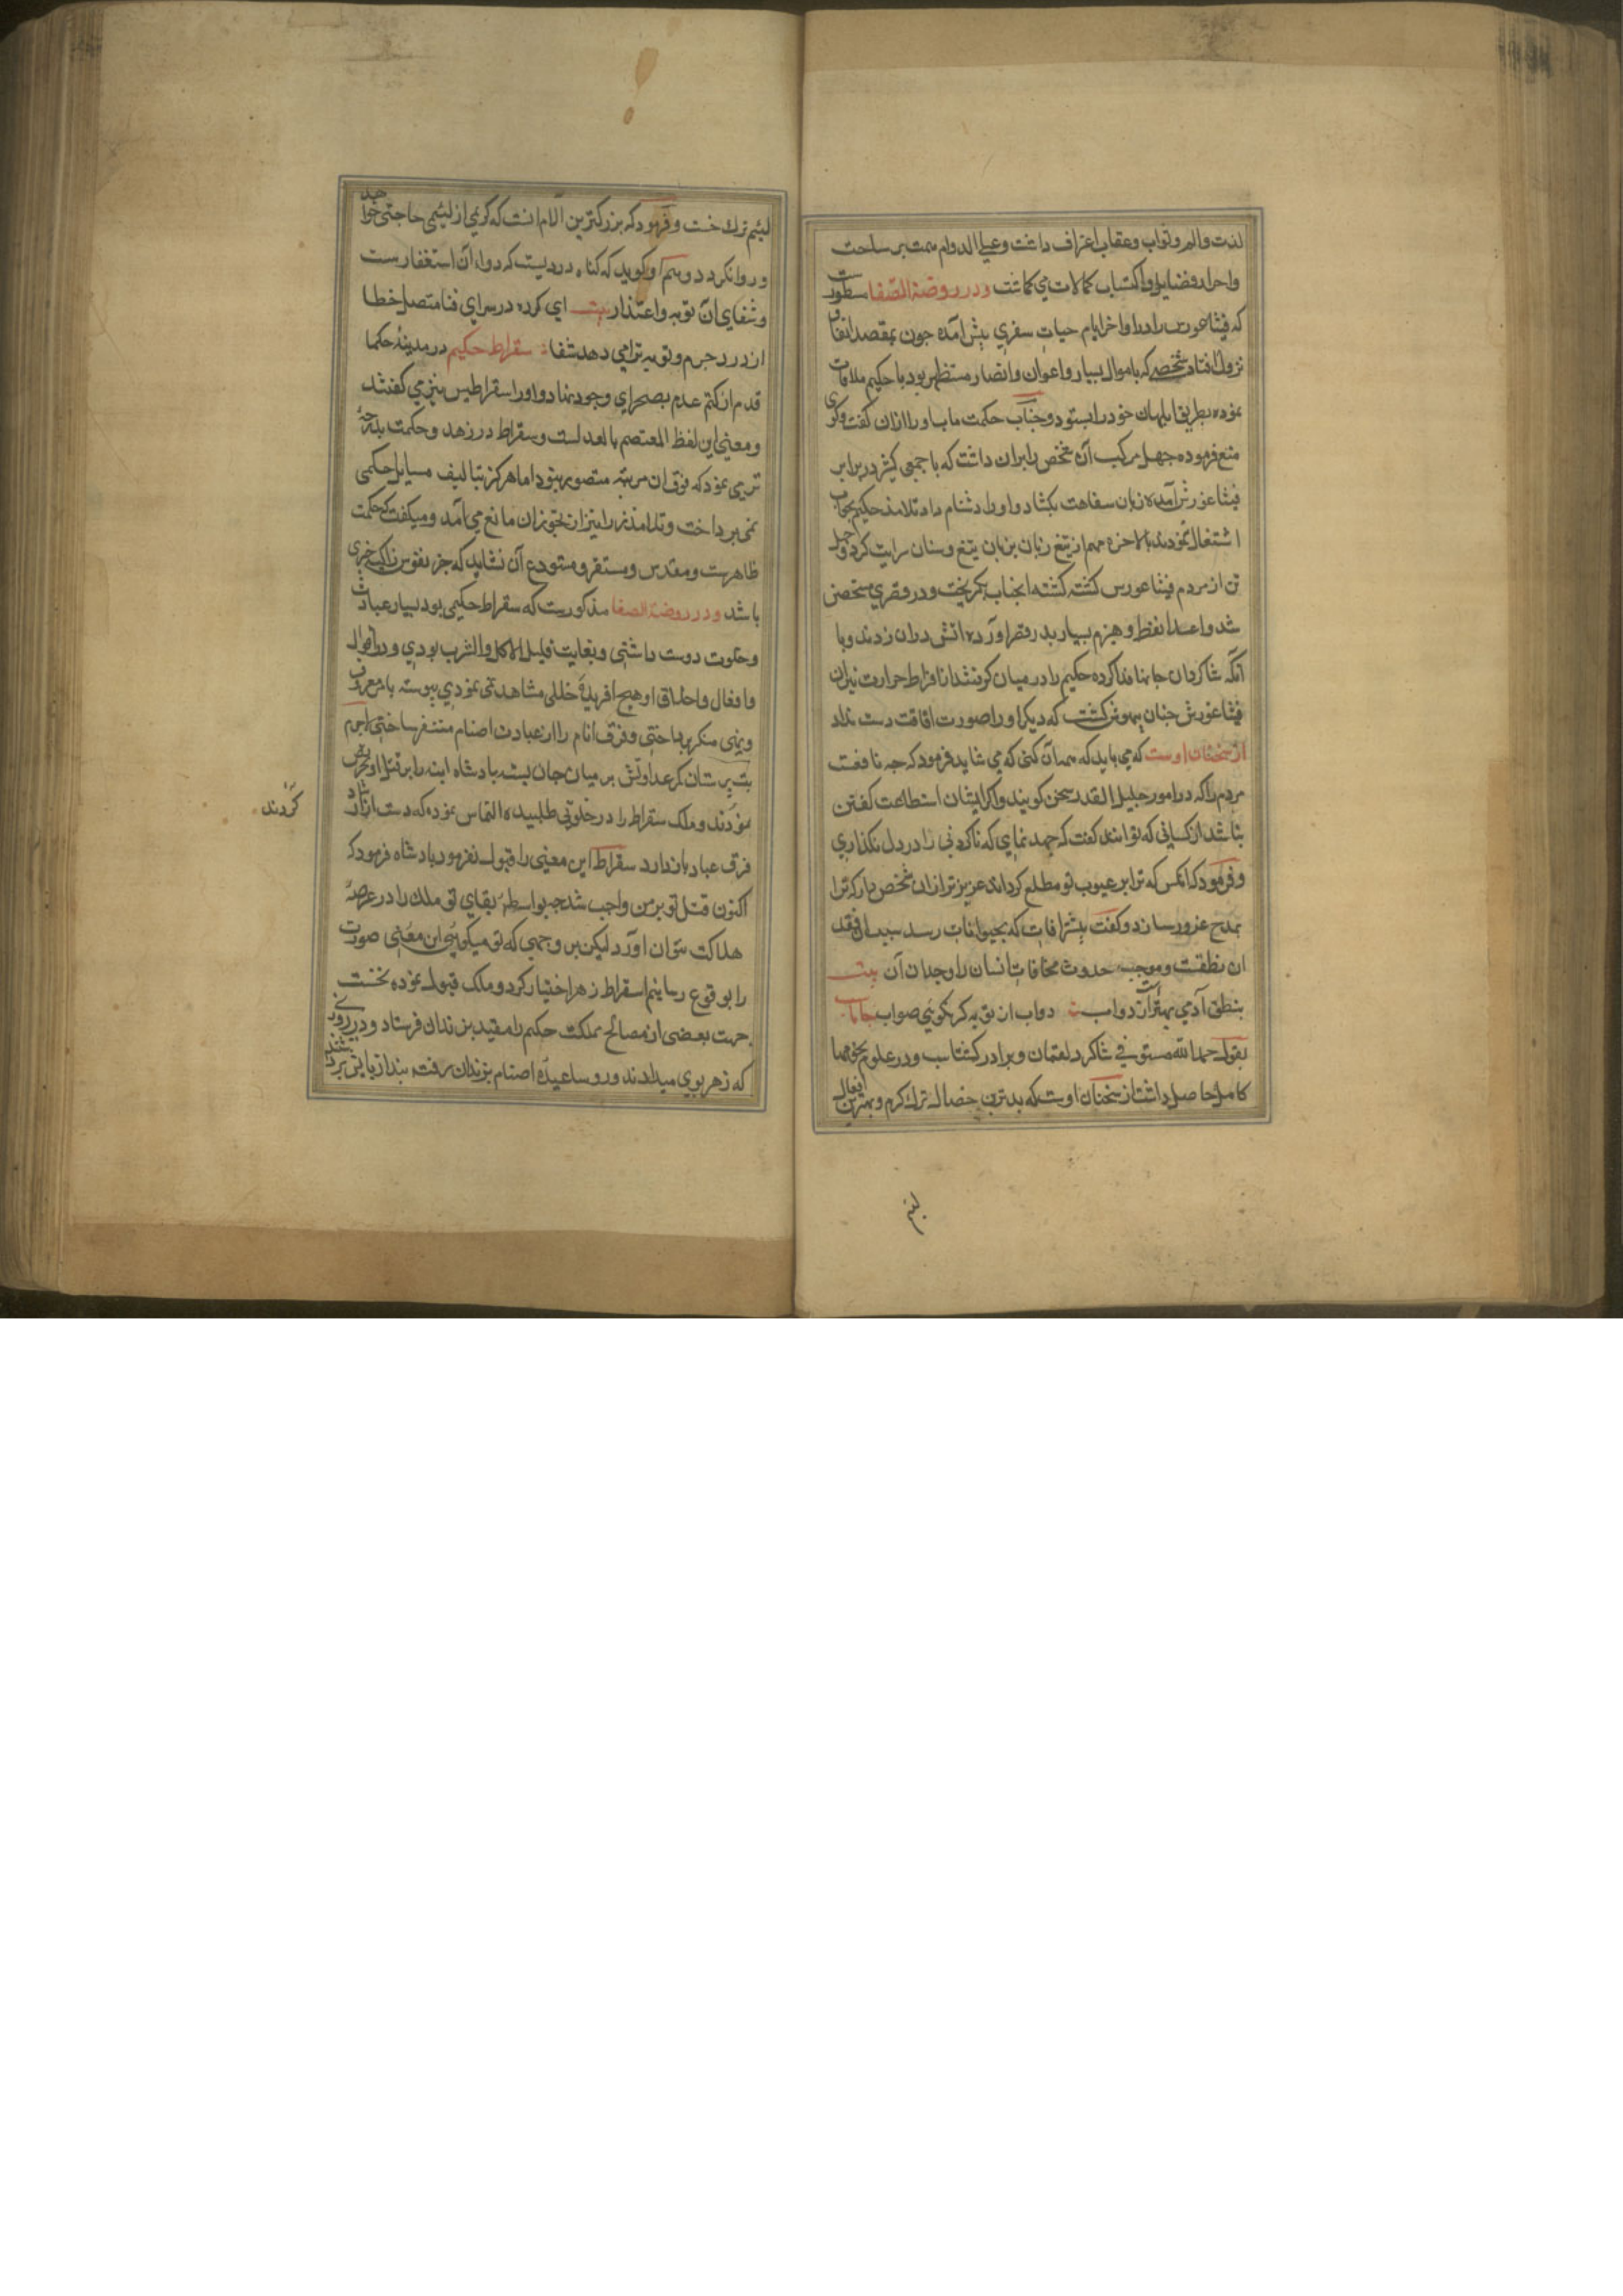 لذت والم وثواب وعقاب اعتراف داشت وعلی الدوام همت بر ساحت
واحراز فضایل واکتساب کمالات می کماشت ودر روضة الصفا مسطورست
که فیثاغورس را در اواخر ایام حیات سفری پیش آمده چون بمقصد اتفاق
نزول افتاد شخصی که باموال بسیار واعوان وانصار مستظهر بود با حکیم ملاقات
نموده بطریق ابلهان خود را بستود وجناب حکمت ماب او را از ان کفت وکوی
منع فرموده جهل مرکب آن شخص را بران داشت که با جمعی کثیر در برابر
فیثاغورش آمده زبان سفاهت بکشاد و او را دشنام داد تلامذه حکیم بجواب
اشتغال نمودند بالاخره مهم از تیغ زبان بزبان تیغ وسنان سرایت کرد وچهل
تن از مردم فیثاغورس کشته کشته انجناب بکریخت ودر قصری متحصن
شد واعدا نفط وهیزم بسیار بدر قصر آورده اتش دران زدند وبا
آنکه شاکردان جانها فدا کرده حکیم را در میان کرفتند از افراط حرارت نیران
فیثاغورش چنان بیهوش کشت که دیکر او را صورت افاقت دست نداد
از سخنان اوست که می باید که همه آن کنی که می شاید فرمود که چه نافعست
مردم را که در امور جلیل القدر سخن کویند واکر ایشان استطاعت کفتن
نباشد از کسانی که توانند کفت که جهد نمای که ناکردنی را در دل نکذاری
وفرمود که انکس که ترا بر عیوب تو مطلع کرداند عزیزتر از ان شخص دار که ترا
بمدح غرور سازد وکفت بیشتر آفات که بحیوانات رسد بسبب فقد
ان نطقست وموجب حدوث مخافات انسان را وجدان آن بیت
بنطق آدمی بهترست از دواب دواب از تو به کر نکویی صواب جاماسب
بقول حمد الله مستوفی شاکرد لقمان وبرادر کشتاسب ودر علوم نجوم مهارت
کامل حاصل داشت از سخنان اوست که بدترین خصال ترک کرم وبهترین افعال
لئیم
لئیم ترک خست وفرمود که بزرکترین آلام انست که کریمی از لئیمی حاجتی خواهد
وروا نکردد وهم او کوید که کناه دردیست که دواء آن استغفارست
وشفای آن توبه واعتذار بیت ای کرده در سرای فنا متصل خطا
از درد جرم وتوبه ترا می دهد شفا سقراط حکیم در مدینه حکما
قدم از کتم عدم بصحرای وجود نهاد و اورا سقراطیس نیز می کفتند
ومعنی این لفظ المعتصم بالعدلست وسقراط در زهد وحکمت بدرجه
ترقی نمود که فوق ان مرتبه متصور نبود اما هرکز بتالیف مسایل حکمی
نمی پرداخت وتلامذه را نیز از تجویز ان مانع می آمد ومیکفت که حکمت
طاهرست ومقدس ومستقر ومستودع آن نشاید که جز نفوس زاکیه چیزی
باشد ودر روضة الصفا مذکورست که سقراط حکیمی بود بسیار عبادت
وخلوت دوست داشتی وبغایت قلیل الاکل والشرب بودی ودر اقوال
وافعال واخلاق او هیچ آفریده خللی مشاهده نمی نمودی پیوسته بامر معروف
ونهی منکر پرداختی وفرق انام را از عبادت اصنام متنفر ساختی لاجرم
بت پرستان کمر عداوتش بر میان جان بسته پادشاه اثینه را بر قتل او تحریض
نمودند وملک سقراط را در خلوتی طلبیده التماس نموده که دست از ارشاد
کردند
فرق عباد باز دارد سقراط این معنی را قبول نفرمود پادشاه فرمود که
اکنون قتل تو بر من واجب شد چه بواسطه بقای تو ملک را در عرصه
هلاکت نتوان آورد لیکن بر وجهی که تو میکویی این معنی صورت
را بوقوع رسانیم سقراط زهر اختیار کرد وملک قبول نموده نخست
جهت بعضی از مصالح مملکت حکیم را مقید بزندان فرستاد ودر روزی
که زهر بوی میدادند وروسا عبده اصنام بزندان رفته بند از پایش برداشتند